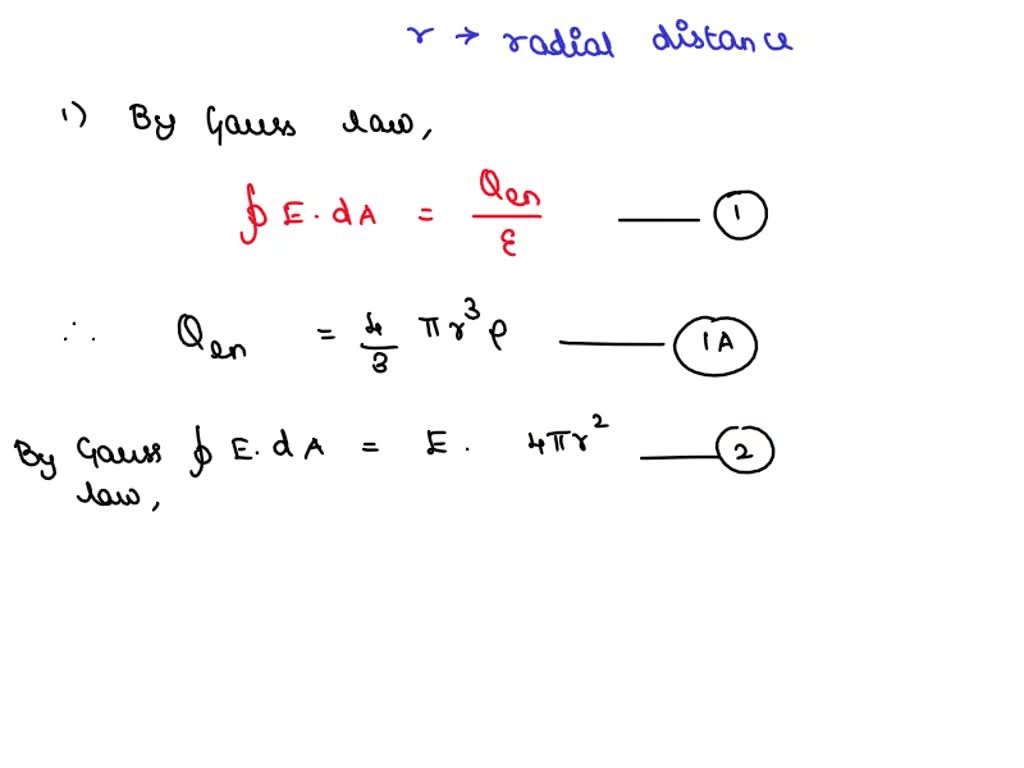 r → radial distance
1) By Gauss law,
∮ E. dA = Qen/ε —— 1
∴ Qen = 4/3 πr³ρ —— 1A
By Gauss ∮ E. dA = E. 4πr² —— 2
law,